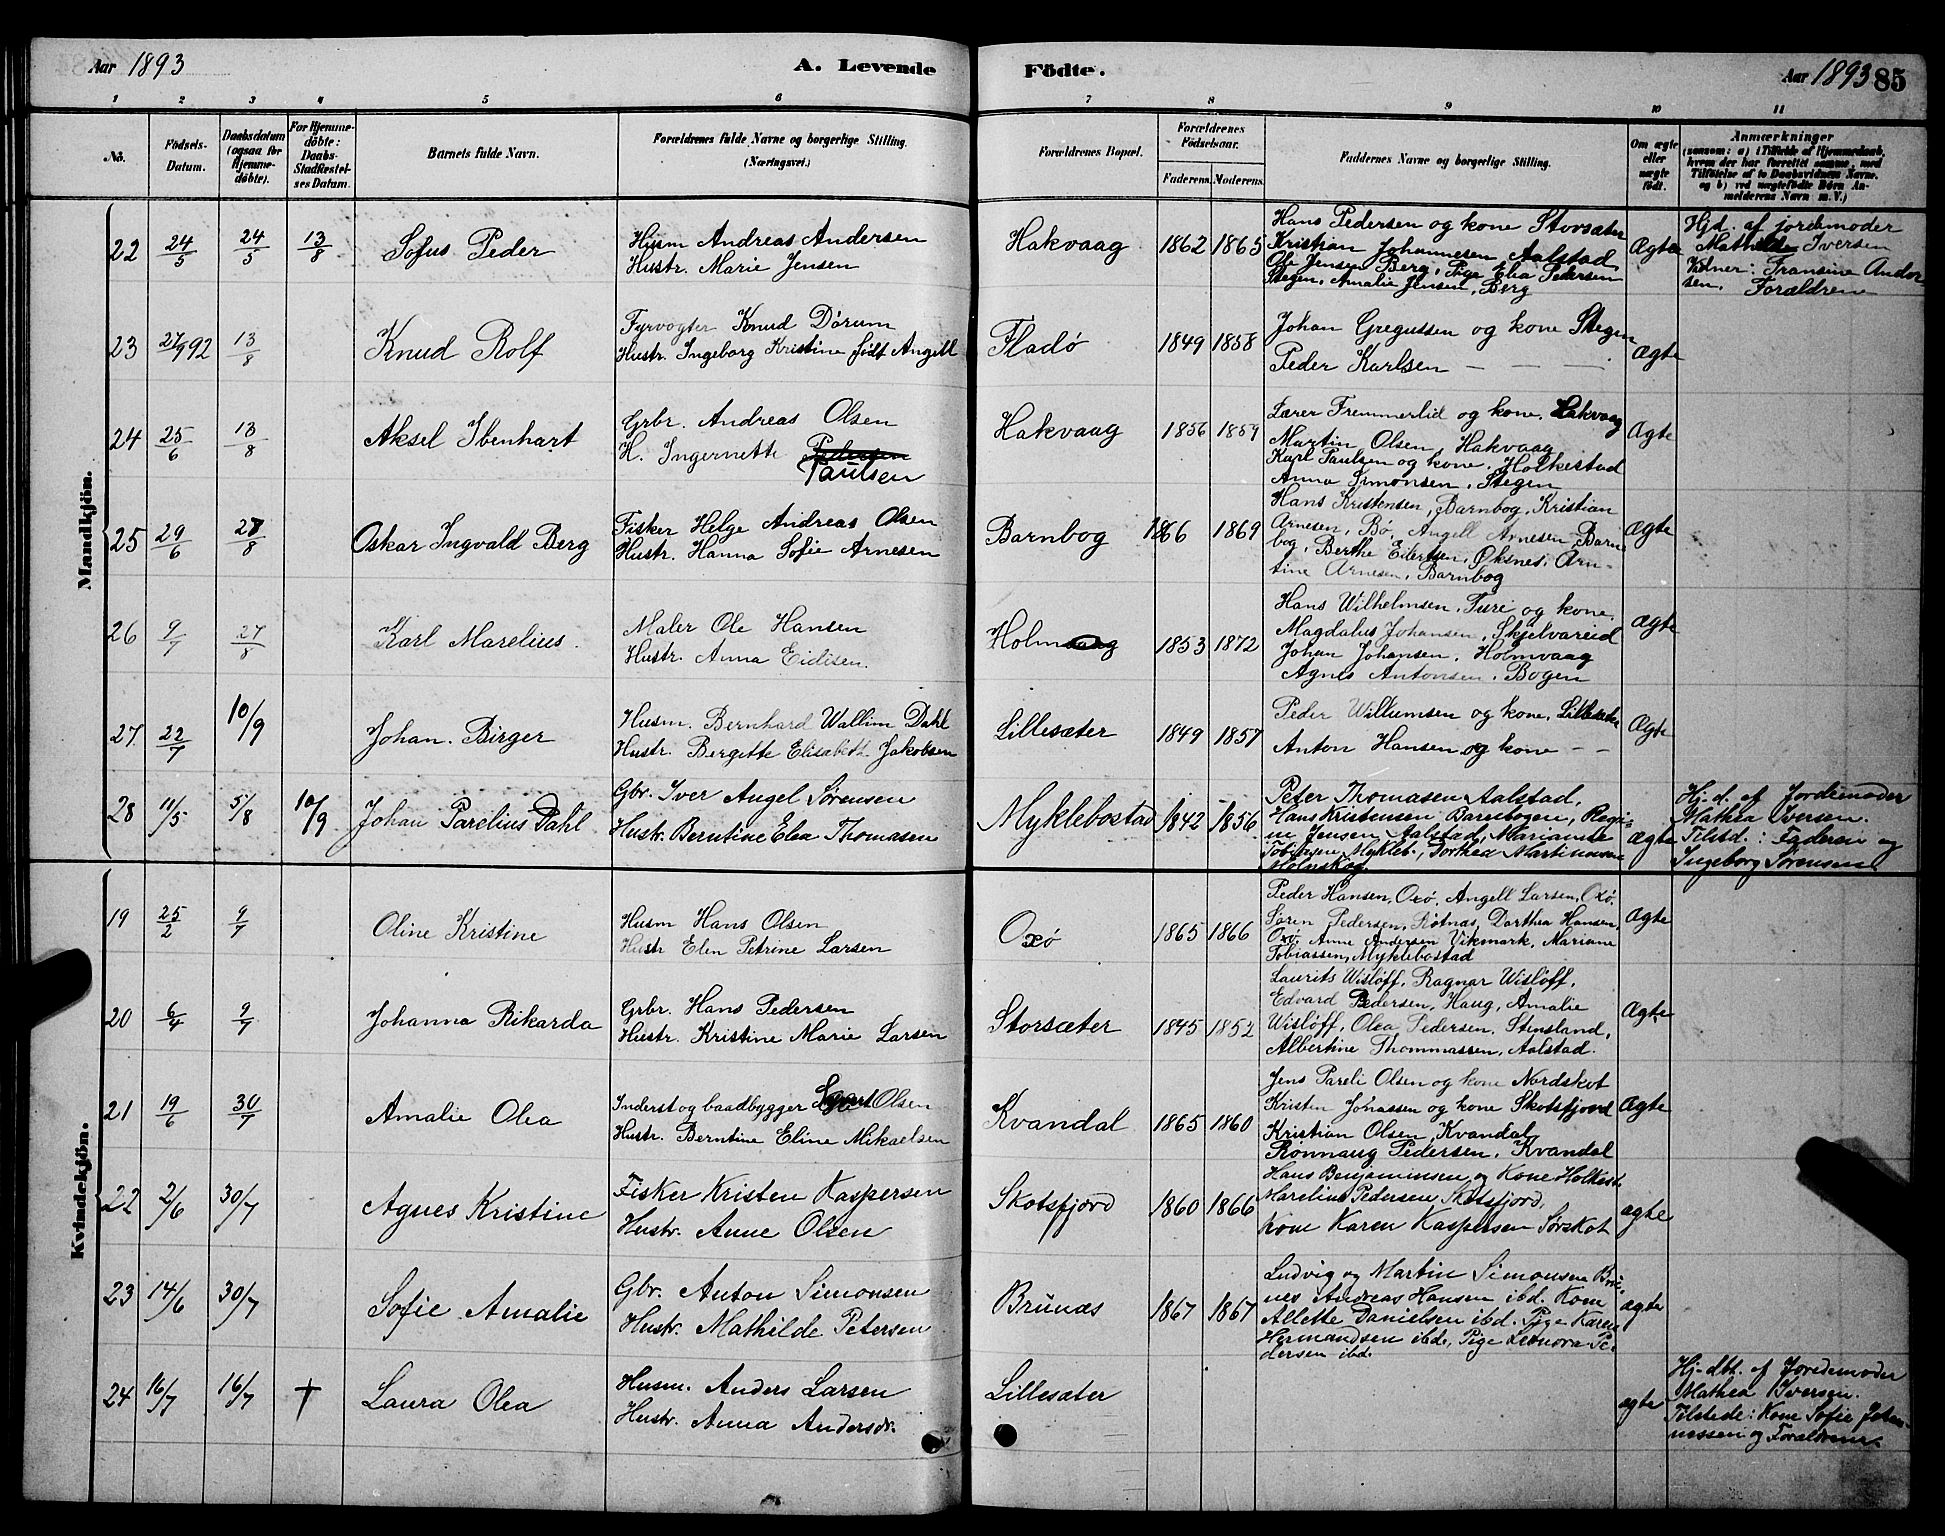 Aar 1893 A. Levende Födte. Aar 1893 85
1 2 3 4 5 6 7 8 9 10 11
No.
Födsels-Datum.
Daabsdatum (ogsaa for Hjemme-döbte).
For Hjemme-döbte: Daabs-Stadfæstel-ses Datum.
Barnets fulde Navn.
Forældrenes fulde Navne og borgerlige Stilling. (Næringsvei.)
Forældrenes Bopæl.
Forældrenes Födselsaar.
Faderens. Moderens.
Faddernes Navne og borgerlige Stilling.
Om ægte eller uægte födt.
Anmærkninger
(saasom: a) i Tilfælde af Hjemmedaab, hvem der har forrettet samme, med Tilföielse af to Daabsvidners Navne, og b) ved uægtefödte Börn An-melderens Navn m. V.)
Mandkjön.
22 24/5 24/5 13/8 Sofus Peder
Husm Andreas Andersen
Hustr. Marie Jensen
Hakvaag 1862 1865
Hans Pedersen og kone Storsæter
Kristian Johannesen Aalstad,
Ole Jensen Berg, Pige Elea Pedersen
Stegen, Amalie Jensen, Berg
Ægte
Hjd. af jordemoder
Mathilde Iversen
Vidner: Fransine Ander
sen, Forældrene
23 27/9 92 13/8 Knud Rolf
Fyrvogter Knud Dørum
Hustr. Ingeborg Kristine født Angell
Fladø 1849 1858
Johan Gregussen og kone Stegen
Peder Karlsen — — —
Ægte
24 25/6 13/8 Aksel Ibenhart
Grbr. Andreas Olsen
H. Ingernette Pedersen
Paulsen
Hakvaag 1856 1859
Lærer Fremmerlid og kone, Hakvaag
Martin Olsen, Hakvaag
Karl Paulsen og kone, Holkestad
Anna Simonsen, Stegen
Ægte
25 29/6 27/8 Oskar Ingvald Berg
Fisker Helge Andreas Olsen
Hustr. Hanna Sofie Arnesen
Barnbog 1866 1869
Hans Kristensen, Barnbog, Kristian
Arnesen, Bø, Angell Arnesen Barn
bog, Berthe Eilertsen, Øksnes, Arn-
tine Arnesen, Barnbog
Ægte
26 9/7 27/8 Karl Marelius.
Maler Ole Hansen
Hustr. Anna Eidisen.
Holmvaag 1853 1872
Hans Wilhelmsen, Turi og kone,
Magdalus Johansen, Skjelvareid
Johan Johansen, Holmvaag
Agnes Antonsen, Bogen
Ægte
27 22/7 10/9 Johan Birger
Husm. Bernhard Wallim Dahl
Hustr. Bergitte Elisabeth Jakobsen
Lillesæter 1849 1857
Peder Willumsen og kone, Lillesæter
Anton Hansen og kone — —
Ægte
28 11/5 5/8 10/9 Johan Parelius Dahl
Gbr. Iver Angel Sørensen
Hustr. Berntine Elea Thomasen
Myklebostad 1842 1856
Peter Thomasen Aalstad,
Hans Kristensen, Barnbogen, Regi-
ne Jensen, Aalstad, Marianne
Tobiasen Mykleb., Dorthea Martinussen
Holmskog.
Ægte
Hj-d. af Jordemoder
Mathea Iversen.
Tilstd.: Faderen og
Ingeborg Sørensen
Kvindekjön.
19 25/2 9/7 Oline Kristine
Husm Hans Olsen
Hustr Elen Petrine Larsen
Oxø 1865 1866
Peder Hansen, Oxø, Angell Larsen, Oxø,
Søren Pedersen, Røtnas, Dorthea Hansen,
Oxø, Anne Andersen Vikmark, Mariane
Tobiassen, Myklebostad
Ægte
20 6/4 9/7 Johanna Rikarda
Grbr. Hans Pedersen
Hustr. Kristine Marie Larsen
Storsæter 1845 1852
Laurits Wisløff, Ragnar Wisløff,
Edvard Pedersen, Haug, Amalie
Wisløff, Olea Pedersen, Stensland,
Albertine Thommassen, Aalstad.
Ægte
21 19/6 30/7 Amalie Olea
Inderst og baadbygger Olsen
Hustr. Berntine Eline Mikaelsen
Kvandal 1865 1860
Jens Pareli Olsen og kone Nordskot
Kristen Jonassen og kone Skotsfjord
Kristian Olsen, Kvandal,
Rønnaug Pedersen, Kvandal
Ægte
22 2/6 30/7 Agnes Kristine
Fisker Kristen Kaspersen
Hustr. Anne Olsen
Skotsfjord 1860 1866
Hans Benjaminsen og Kone Holkest
Marelius Pedersen Skotsfjord,
Kone Karen Kaspersen Sørskot
ægte
23 14/6 30/7 Sofie Amalie
Gbr. Anton Simonsen
Hustr. Mathilde Petersen
Brunæs 1867 1867
Ludvig og Martin Simonsen Bru-
næs Andreas Hansen ibd. Kone
Allette Danielsen ibd. Pige Karen
Hermandsen ibd., Pige Leonora Pe-
dersen ibd.
ægte
24 16/7 16/7 † Laura Olea
Husm. Anders Larsen
Hustr. Anna Andersdr.
Lillesæter
ægte
Hj-dbt. af Jordemoder
Mathea Iversen.
Tilstede: Kone Sofie Johan-
nessen og Forældrene.